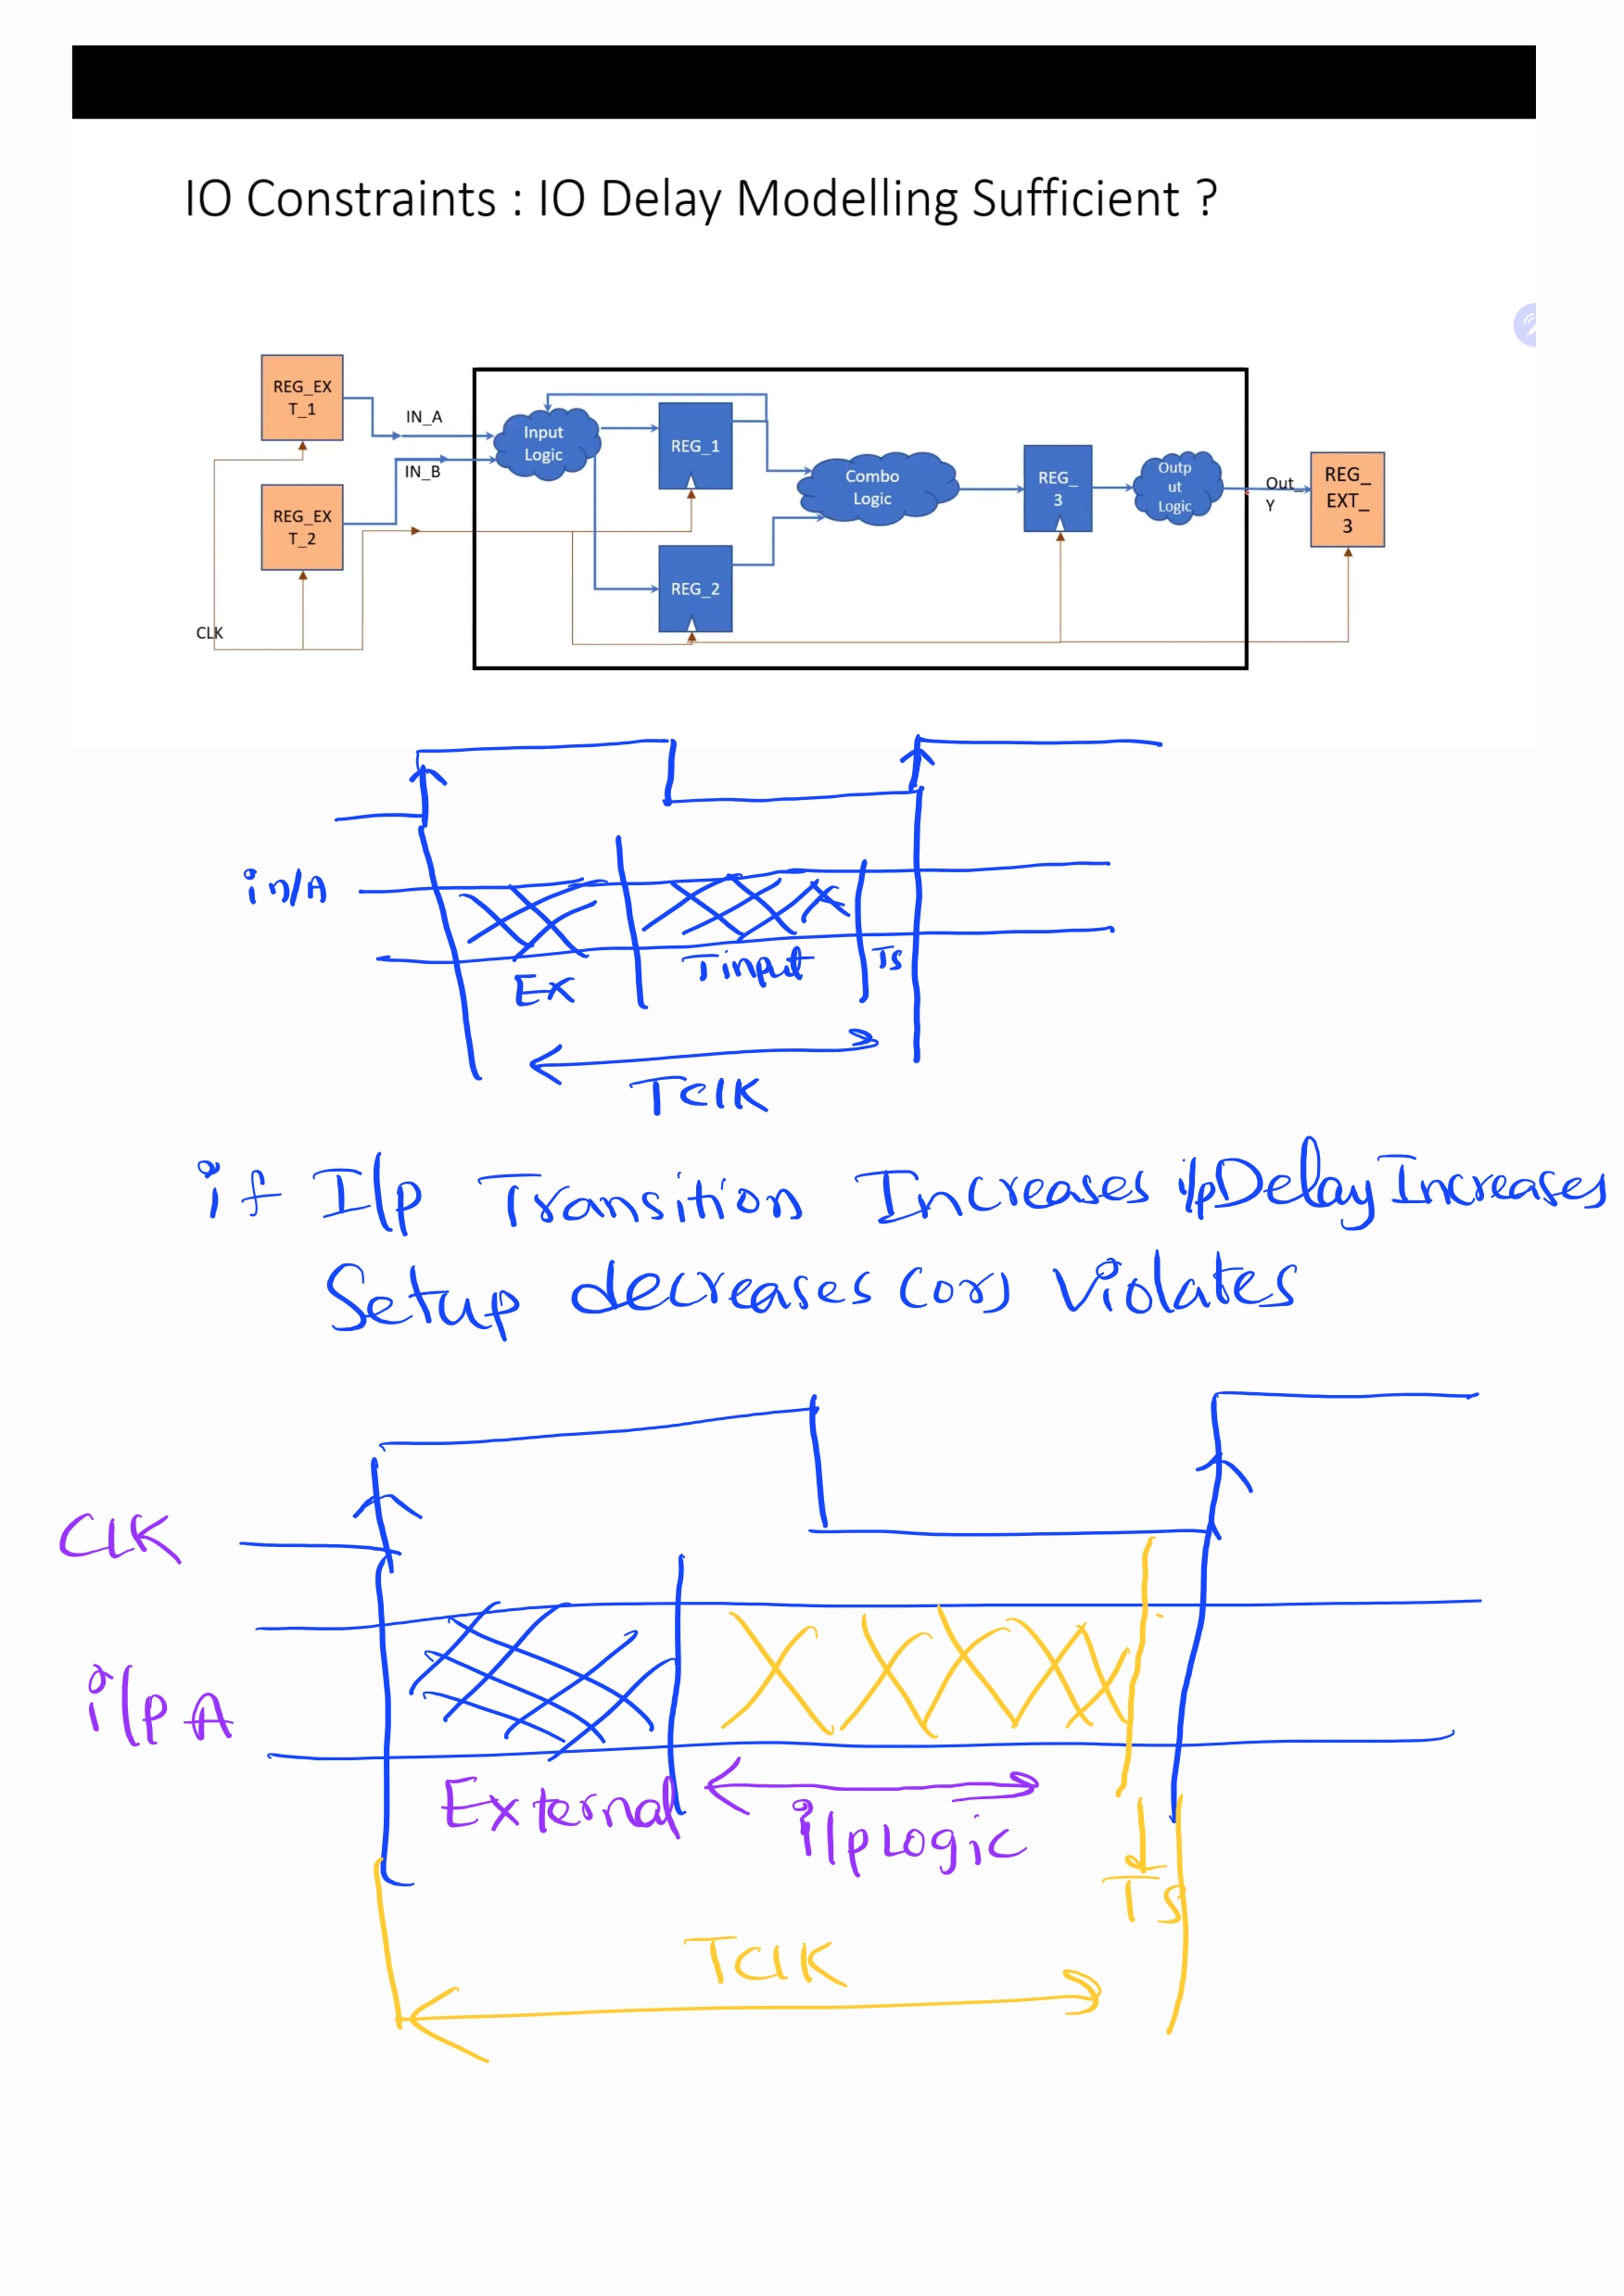 IO Constraints : IO Delay Modelling Sufficient ?
REG_EX
T_1
IN_A
IN_B
REG_EX
T_2
CLK
Input
Logic
REG_1
REG_2
Combo
Logic
REG_
3
Outp
ut
Logic
Out_
Y
REG_
EXT_
3
in/A
Ex
Tinput
Ts
TclK
if I/p Transition Increases i/p Delay Increases
Setup decreases (or) Violates
CLK
i/p A
External
i/p Logic
Ts
TclK